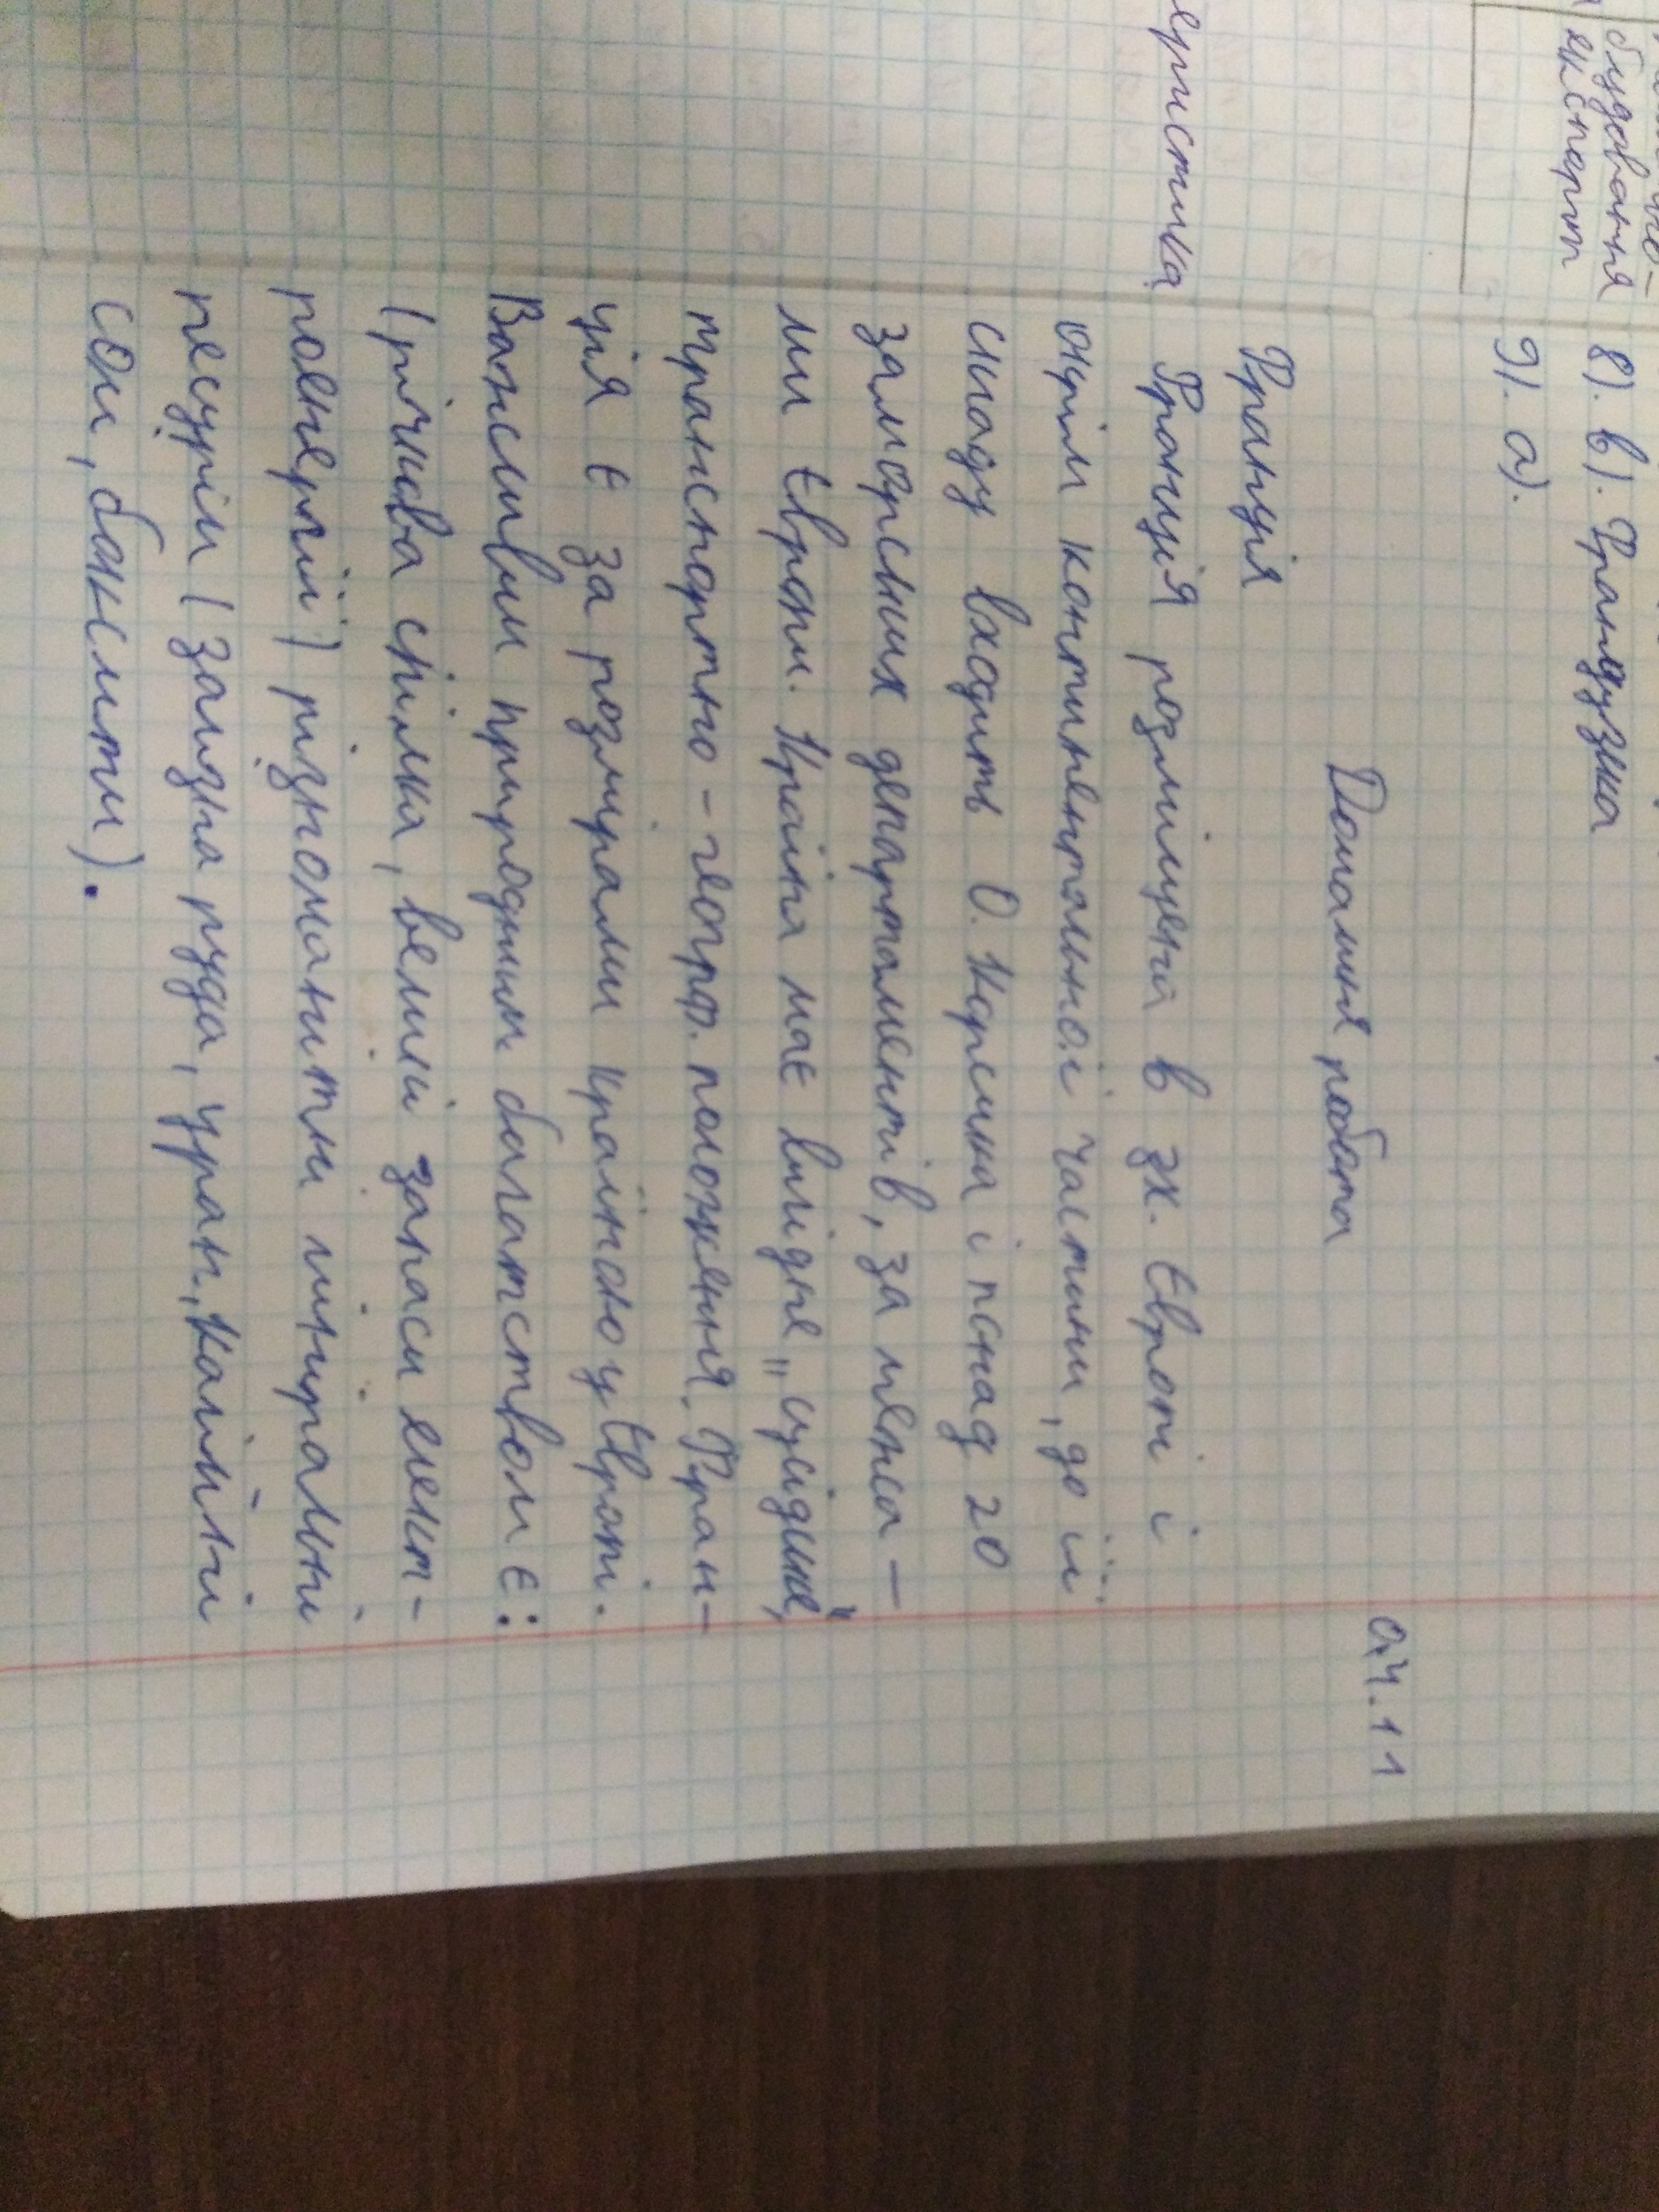 будования
експорт
еристика
8). в). Французка
9). а).
04.11
Домашня робота
Франція
Франція розміщений в зх. Європі і
окрім континентальної частини, до її
складу входить О. Корсика і понад 20
заморських департаментів, за межа-
ми Європи. Країна має вигідне „сусідське"
транспортно-геогрф. положення. Фран-
ція є за розмірами країною у Європі.
Важливим природним багатством є:
(річкова сітка, великі запаси елект-
роенергії) різноманітні міниральні
ресурси (залізна руда, уран, калійні
соли, боксити).